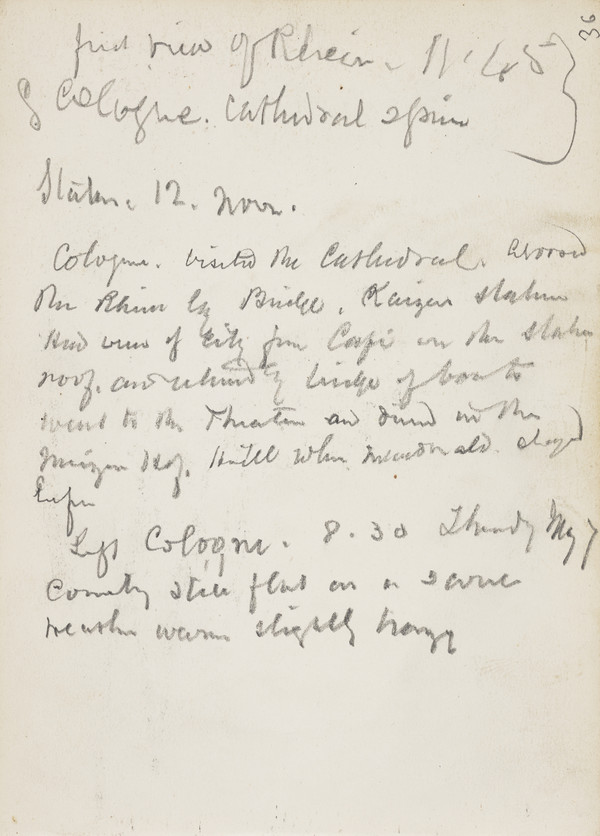 36
first view of Rhein. 11.45
& Cologne. Cathedral spires
Station. 12. noon.
Cologne. Visited the Cathedral. Crossed
the Rhine by Bridge. Kaizer station
Had view of city from Café on the station
roof. and returned by bridge of boats
went to the Theatre and dined in the
Hof. Hotel when Macdonald stayed
before
Left Cologne. 8.30 Thursday May 7
Country still flat on a scone
weather warm slightly hazy